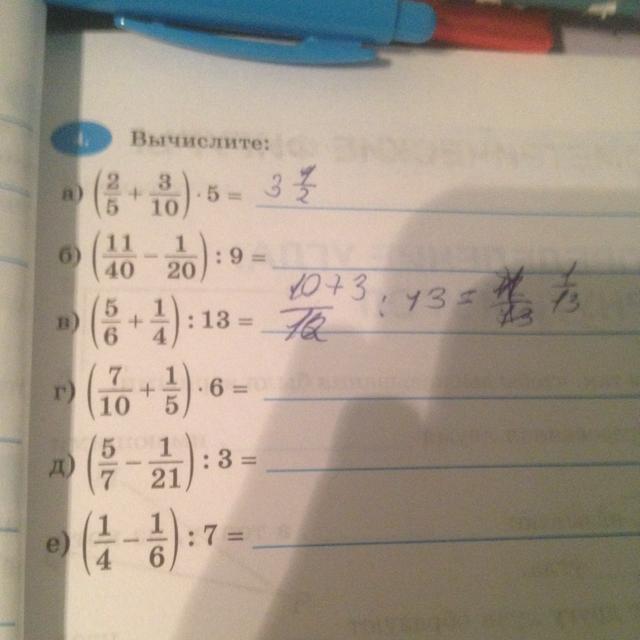 4. Вычислите:
а) (2/5 + 3/10) · 5 = 3 1/2
б) (11/40 − 1/20) : 9 =
в) (5/6 + 1/4) : 13 = 10+3/12 : 13 = 1/13
г) (7/10 + 1/5) · 6 =
д) (5/7 − 1/21) : 3 =
е) (1/4 − 1/6) : 7 =